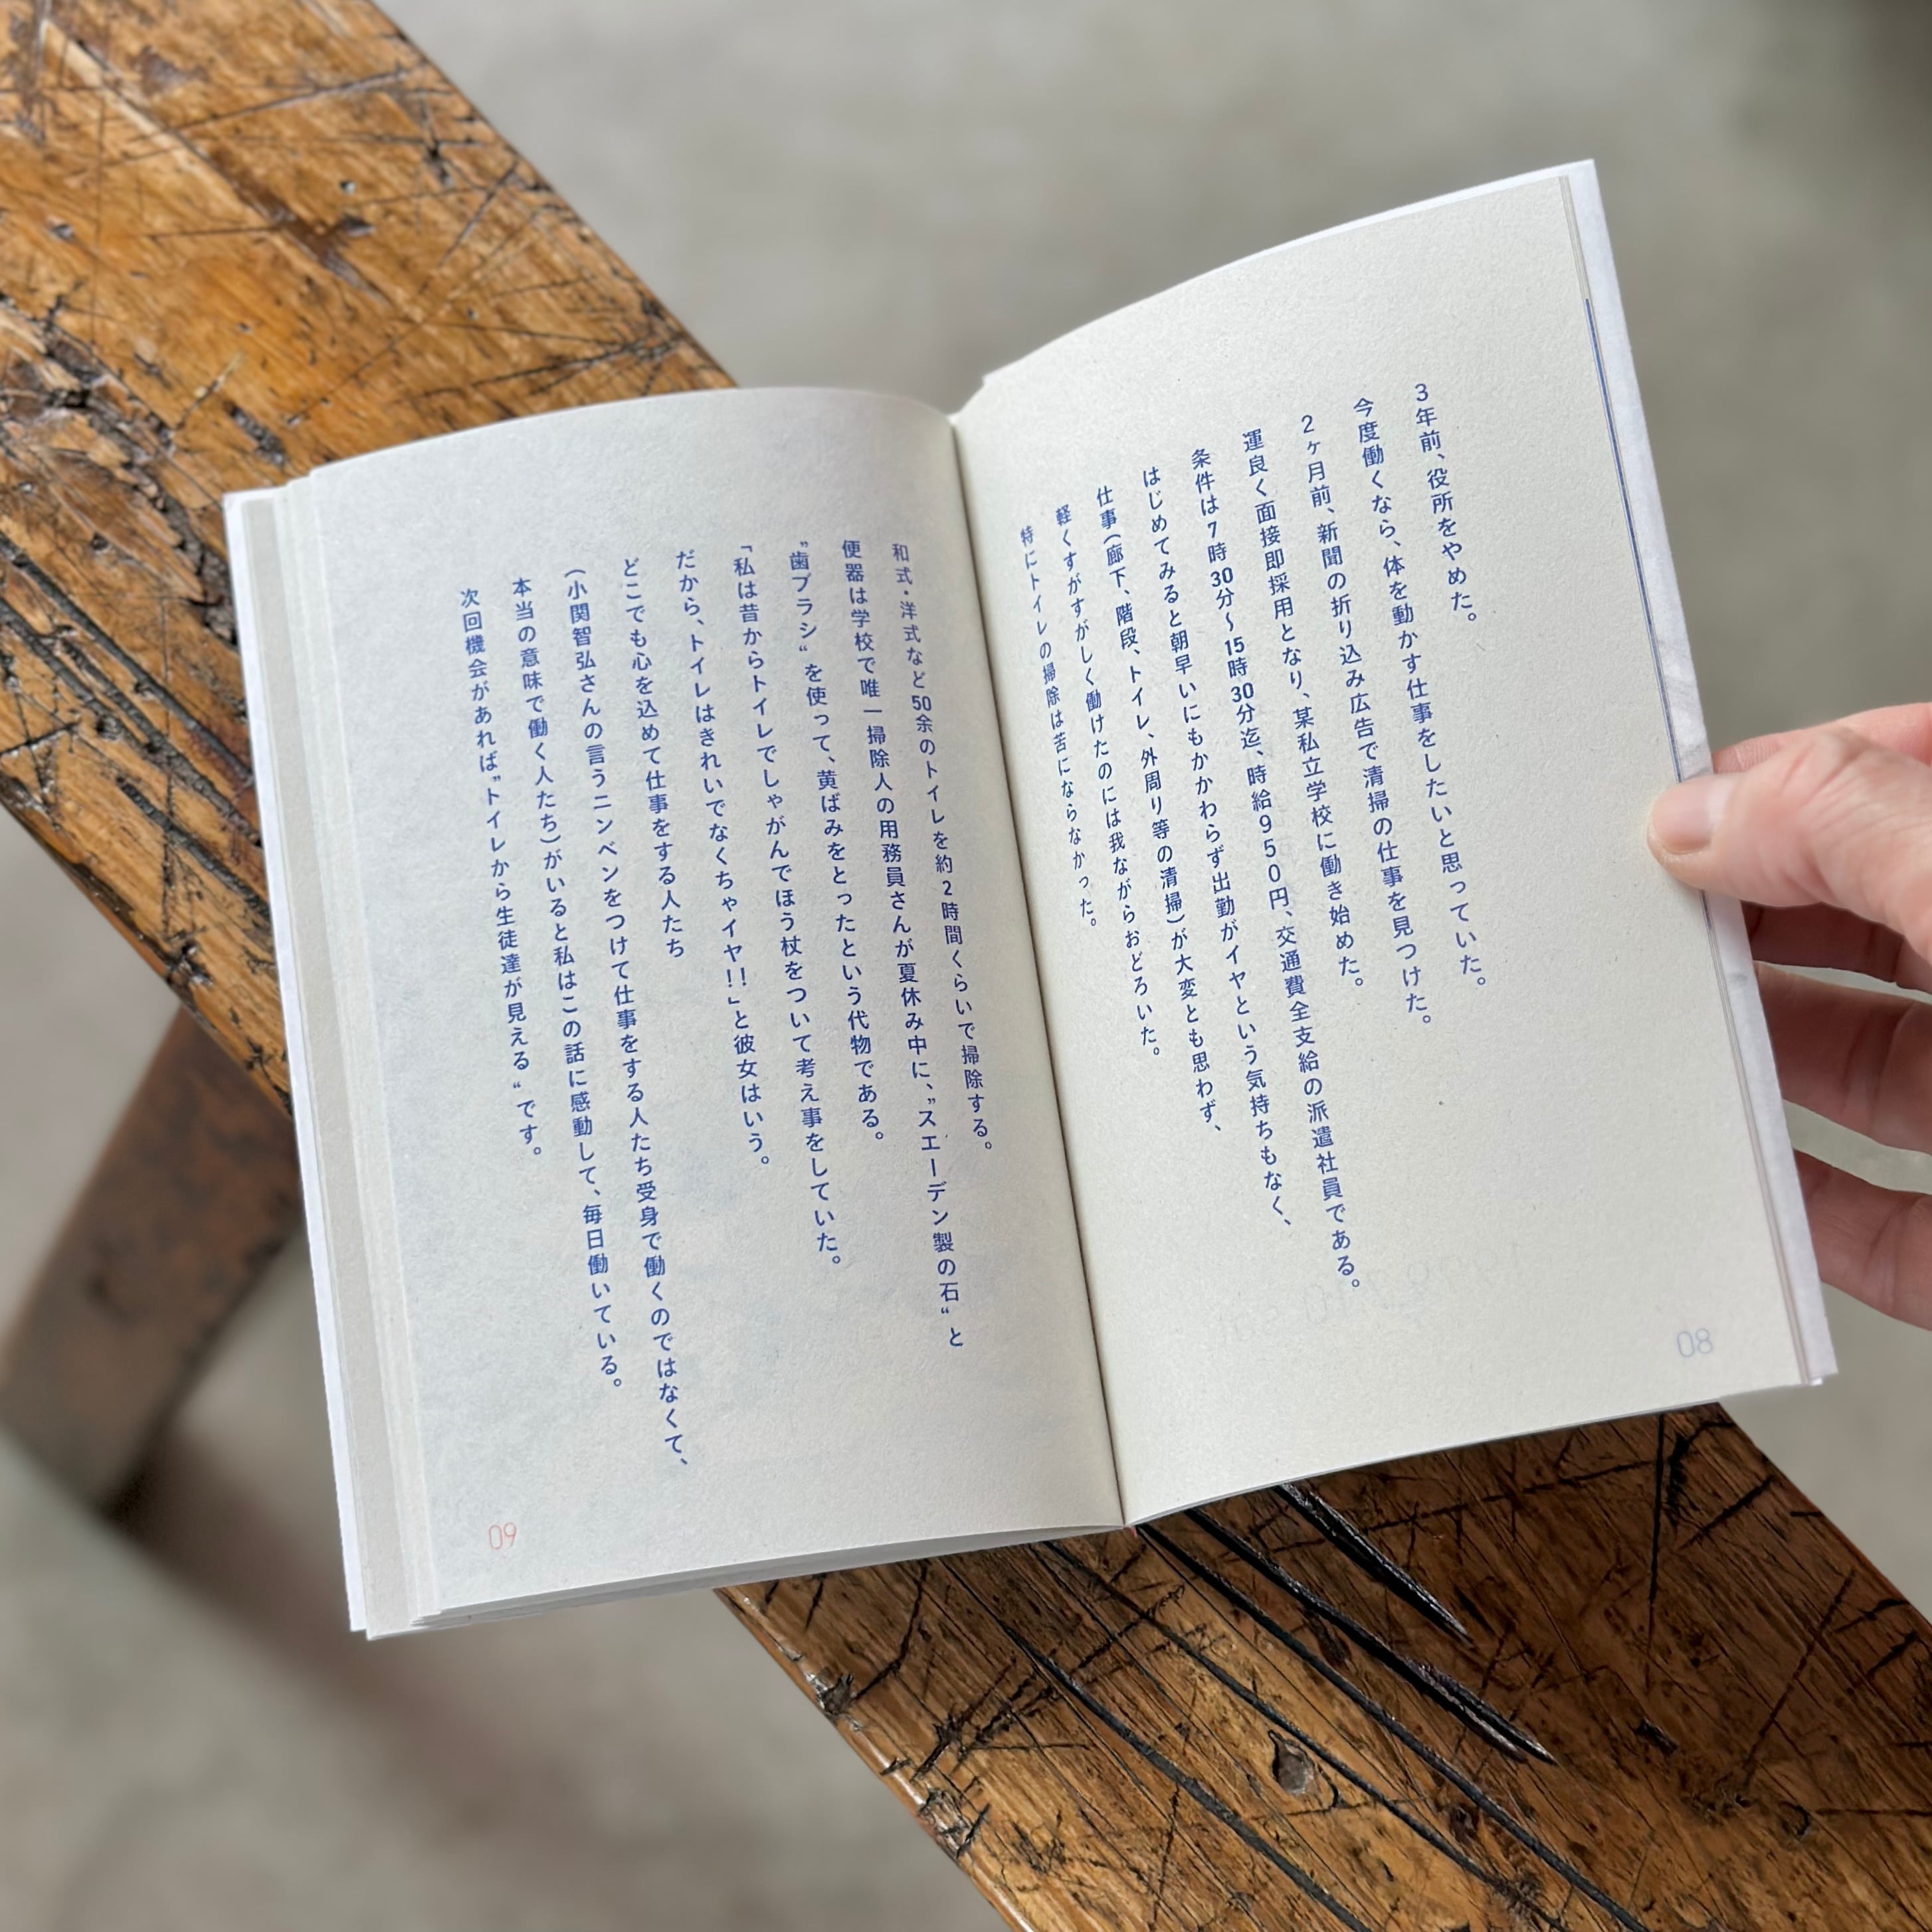 3年前、役所をやめた。
今度働くなら、体を動かす仕事をしたいと思っていた。
2ヶ月前、新聞の折り込み広告で清掃の仕事を見つけた。
運良く面接即採用となり、某私立学校に働き始めた。
条件は7時30分〜15時30分迄、時給950円、交通費全支給の派遣社員である。
はじめてみると朝早いにもかかわらず出勤がイヤという気持ちもなく、
仕事(廊下、階段、トイレ、外周り等の清掃)が大変とも思わず、
軽くすがすがしく働けたのには我ながらおどろいた。
特にトイレの掃除は苦にならなかった。
08
和式・洋式など50余のトイレを約2時間くらいで掃除する。
便器は学校で唯一掃除人の用務員さんが夏休み中に、”スエーデン製の石“と
”歯ブラシ“を使って、黄ばみをとったという代物である。
「私は昔からトイレでしゃがんでほう杖をついて考え事をしていた。
だから、トイレはきれいでなくちゃイヤ!!」と彼女はいう。
どこでも心を込めて仕事をする人たち
(小関智弘さんの言うニンベンをつけて仕事をする人たち受身で働くのではなくて、
本当の意味で働く人たち)がいると私はこの話に感動して、毎日働いている。
次回機会があれば”トイレから生徒達が見える“です。
09